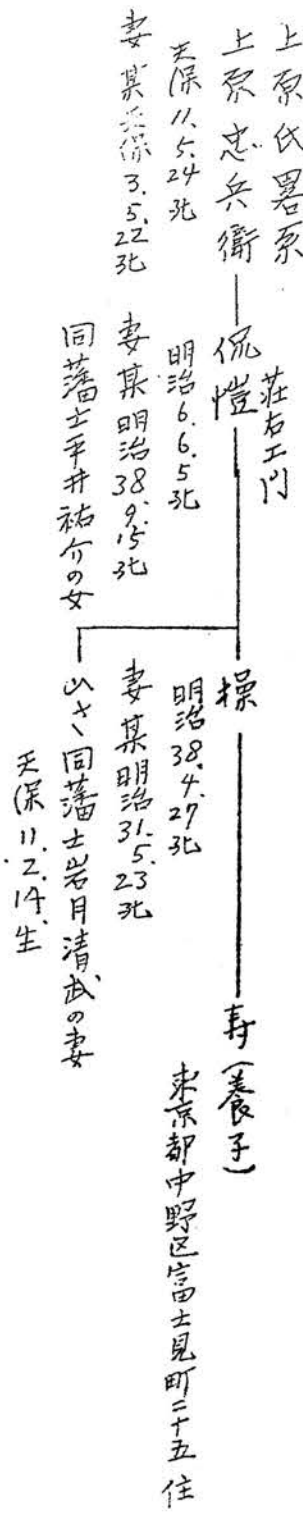 上原氏畧系
上原忠兵衛
天保11.5.24死
妻某天保3.5.22死
荘右エ門
侃愷
明治6.6.5死
妻某明治38.9.15死
同藩士平井祐介の女
操
明治38.4.27死
妻某明治31.5.23死
ひさ同藩士岩月清武の妻
天保11.2.14.生
寿(養子)
東京都中野区富士見町二十五住